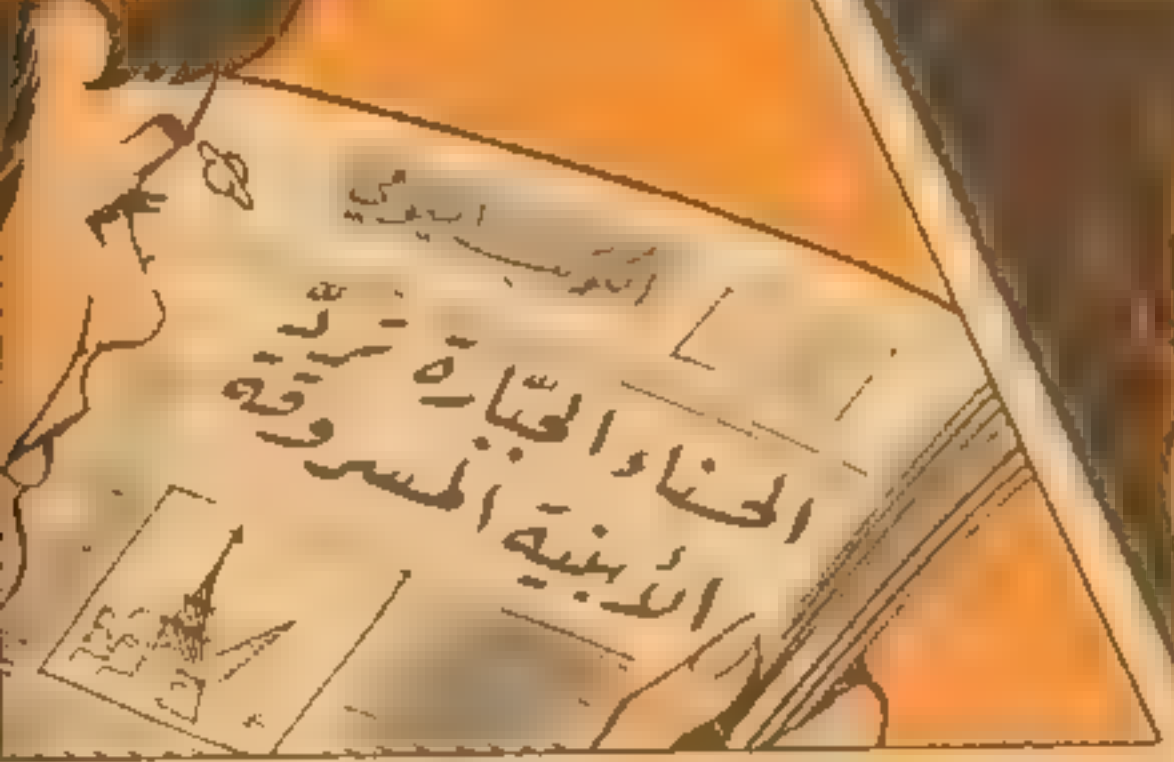 الحسناء الجبّارة تردّ
الأبنية المسروقة